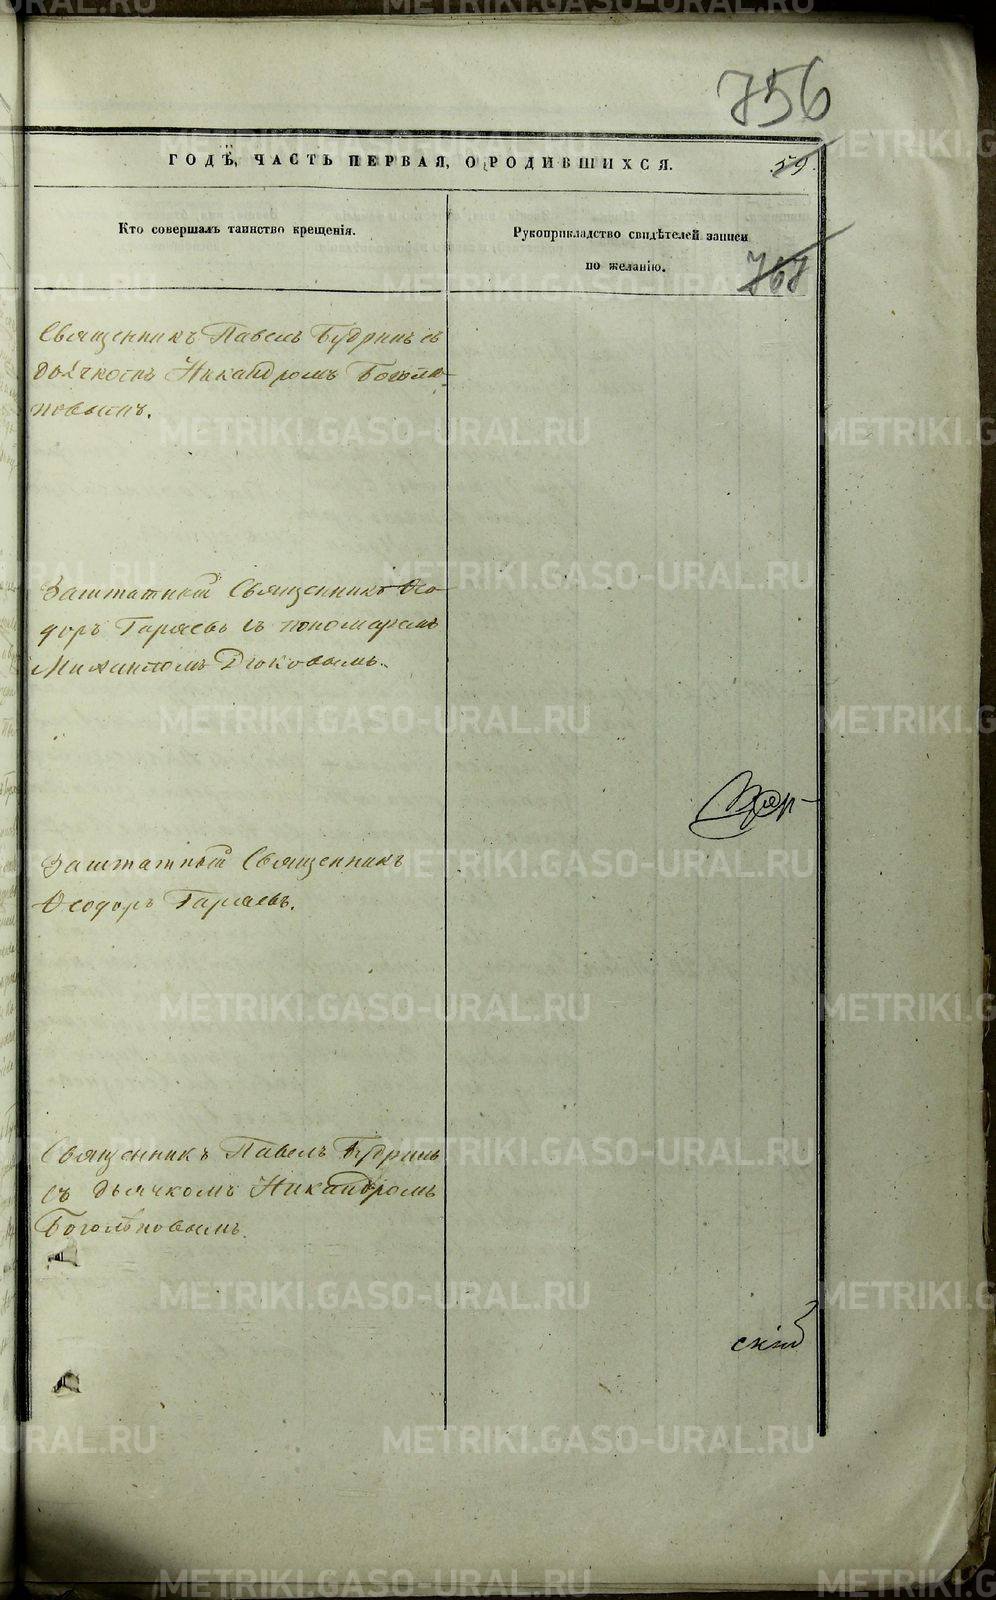 756
ГОДѢ, ЧАСТЬ ПЕРВАЯ, О РОДИВШИХСЯ.
59.
Кто совершалъ таинство крещенія.
Рукоприкладство свидѣтелей записи
по желанію.
768
Священникъ Павелъ Будринъ съ
дьячкомъ Никандромъ Боголѣ-
повымъ.
Заштатный Священникъ Ѳео-
доръ Гаряевъ съ пономаремъ
Михаиломъ Дюковымъ.
Заштатный Священникъ
Ѳеодоръ Гаряевъ.
Священникъ Павелъ Будринъ
съ дьячкомъ Никандромъ
Боголѣповымъ.
скій
METRIKI.GASO-URAL.RU